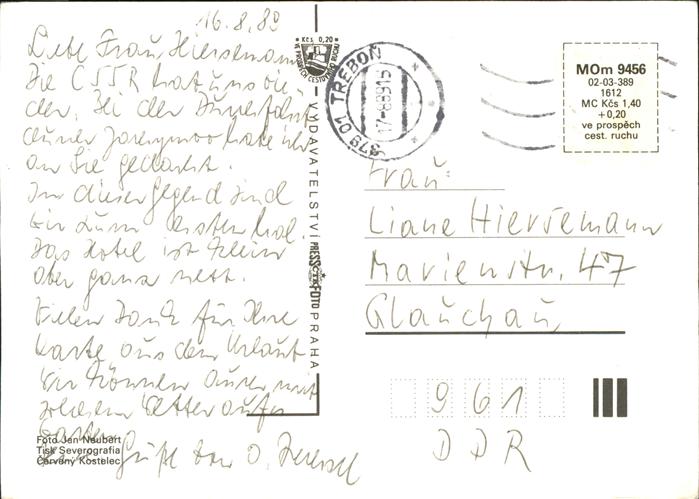 16.8.89
Liebe Frau Hiersemann
Die ČSSR hat uns wie-
der. Bei der
habe ich
an Sie gedacht.
In dieser Gegend sind
wir zum ersten Mal.
Das Hotel ist klein
aber ganz nett.
Vielen Dank für Ihre
Karte aus dem Urlaub
Wir können
Wetter
Grüße von
Foto Jan Neubert
Tisk Severografia
Červený Kostelec
* Kčs 0,20 *
VE PROSPĚCH CESTOVNÍHO RUCHU
VYDAVATELSTVÍ PRESSFOTO PRAHA
379 01 TŘEBOŇ
17-8 89 15
MOm 9456
02-03-389
1612
MC Kčs 1,40
+0,20
ve prospěch
cest. ruchu
Frau
Liane Hiersemann
Marienstr. 47
Glauchau
961
DDR